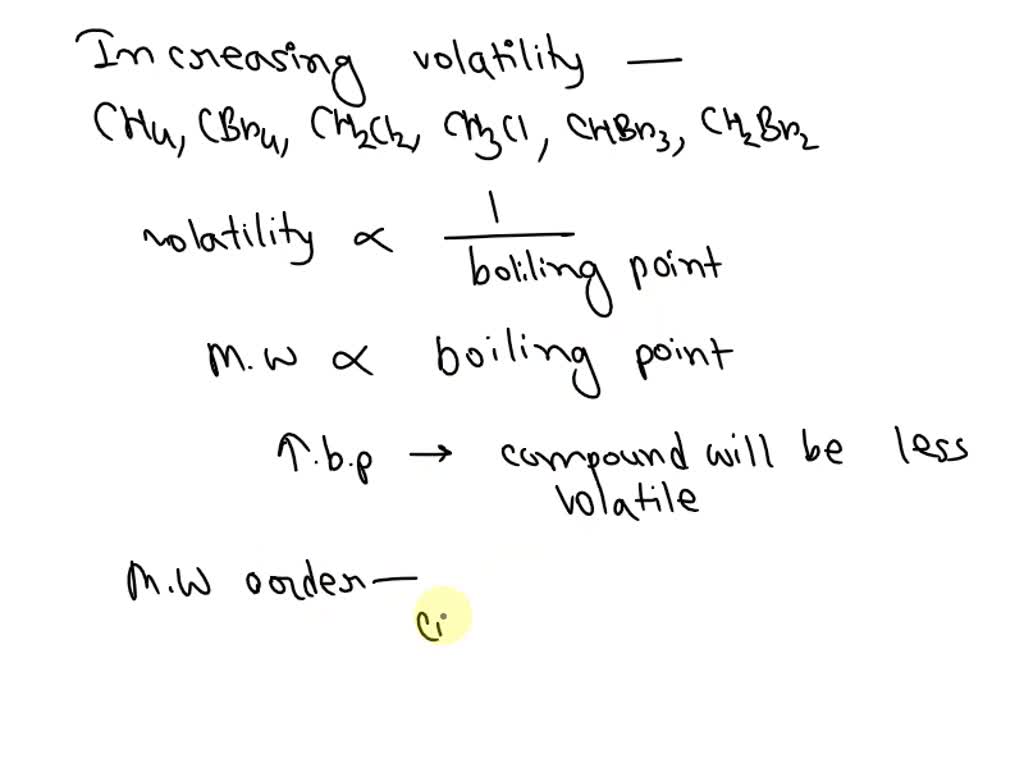 Increasing volatility —
CH4, CBr4, CH2Cl2, CH3Cl, CHBr3, CH2Br2
volatility ∝ 1 / boiling point
M.W ∝ boiling point
↑.b.p → compound will be less
volatile
M.W order —
Ci